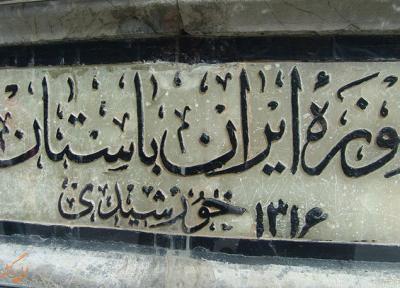 وزهٔ ایران باستان
۱۳۱۶ خورشیدی